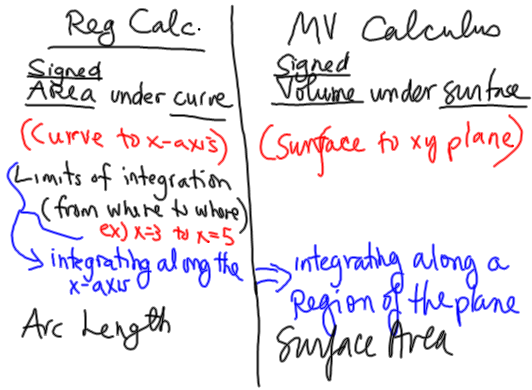 Reg Calc.
Signed
Area under curve
(Curve to x-axis)
Limits of integration
(from where to where)
ex) x=3 to x=5
integrating along the
x-axis
Arc Length
MV Calculus
Signed
Volume under surface
(Surface to xy plane)
integrating along a
Region of the plane
Surface Area